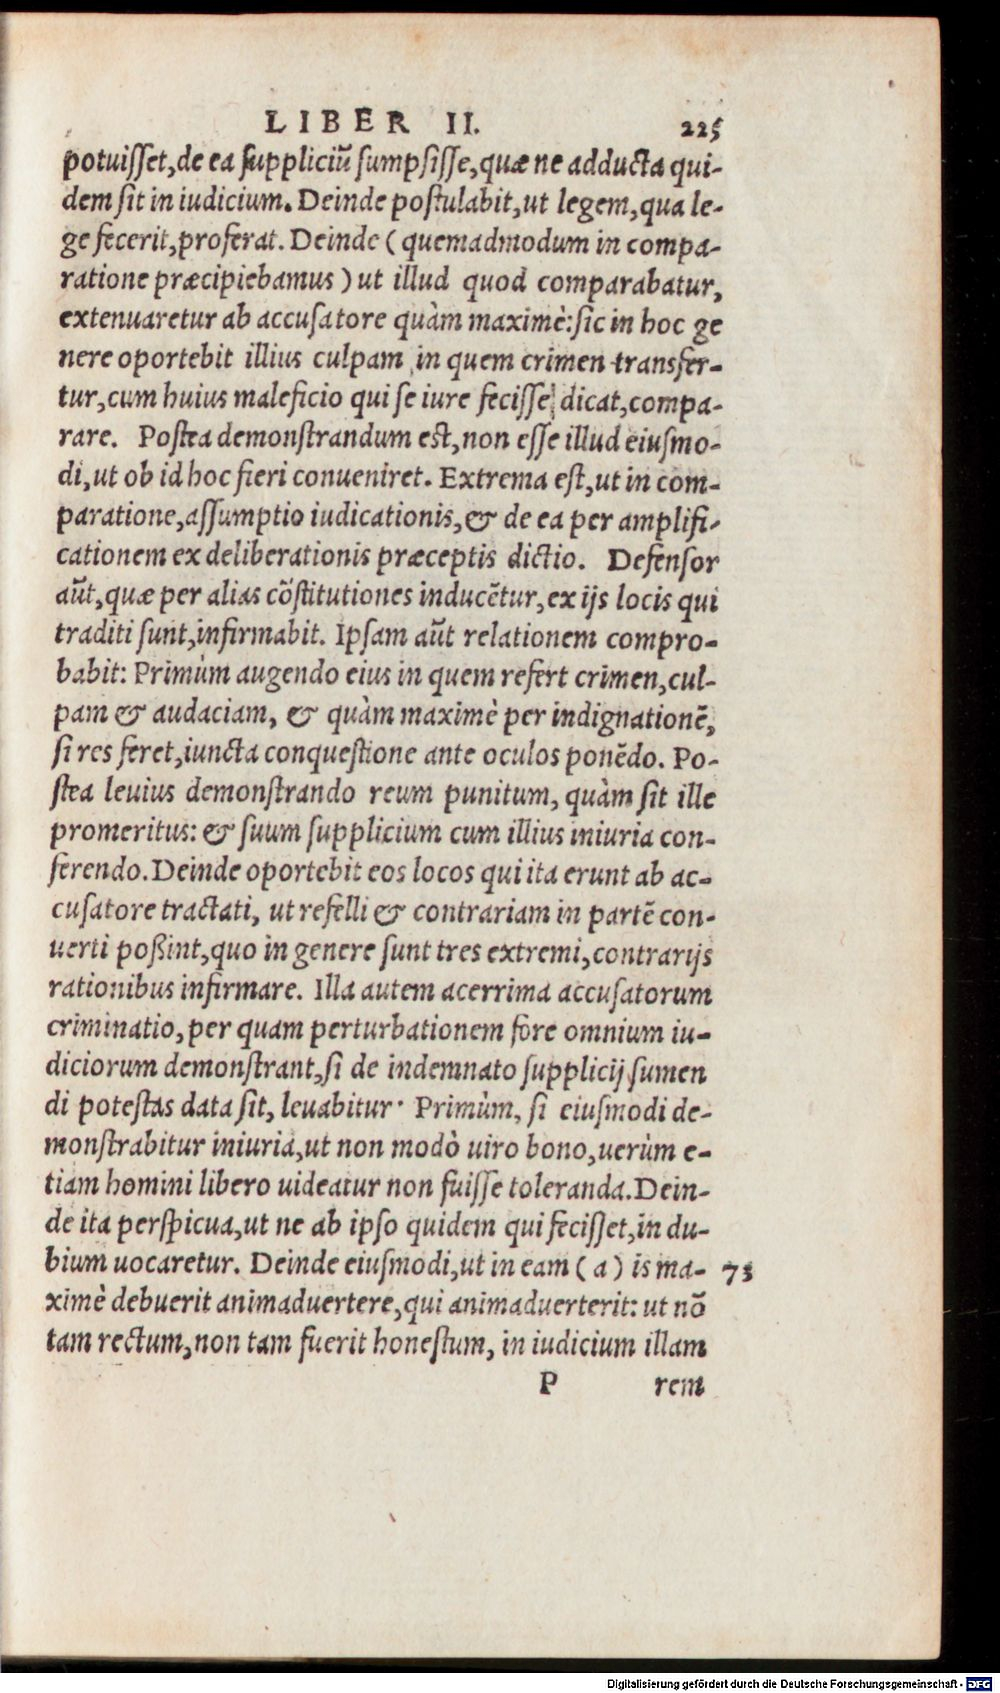 LIBER II. 225
potuisset,de ea suppliciũ sumpsisse,quæ ne adducta qui-
dem sit in iudicium. Deinde postulabit,ut legem,qua le-
ge fecerit,proferat. Deinde (quemadmodum in compa-
ratione præcipiebamus) ut illud quod comparabatur,
extenuaretur ab accusatore quàm maximè:sic in hoc ge
nere oportebit illius culpam in quem crimen transfer-
tur,cum huius maleficio qui se iure fecisse dicat,compa-
rare. Postea demonstrandum est,non esse illud eiusmo-
di,ut ob id hoc fieri conueniret. Extrema est,ut in com-
paratione,assumptio iudicationis,& de ea per amplifi-
cationem ex deliberationis præceptis dictio. Defensor
aũt,quæ per alias cõstitutiones inducẽtur,ex ijs locis qui
traditi sunt,infirmabit. Ipsam aũt relationem compro-
babit: Primùm augendo eius in quem refert crimen,cul-
pam & audaciam, & quàm maximè per indignationẽ,
si res feret,iuncta conquestione ante oculos ponẽdo. Po-
stea leuius demonstrando reum punitum, quàm sit ille
promeritus: & suum supplicium cum illius iniuria con-
ferendo. Deinde oportebit eos locos qui ita erunt ab ac-
cusatore tractati, ut refelli & contrariam in partẽ con-
uerti poßint,quo in genere sunt tres extremi,contrarijs
rationibus infirmare. Illa autem acerrima accusatorum
criminatio,per quam perturbationem fore omnium iu-
diciorum demonstrant,si de indemnato supplicij sumen
di potestas data sit, leuabitur· Primùm, si eiusmodi de-
monstrabitur iniuria,ut non modò uiro bono,uerùm e-
tiam homini libero uideatur non fuisse toleranda.Dein-
de ita perspicua,ut ne ab ipso quidem qui fecisset,in du-
bium uocaretur. Deinde eiusmodi,ut in eam (a) is ma- 73
ximè debuerit animaduertere,qui animaduerterit: ut nõ
tam rectum,non tam fuerit honestum, in iudicium illam
P rem
Digitalisierung gefördert durch die Deutsche Forschungsgemeinschaft - DFG